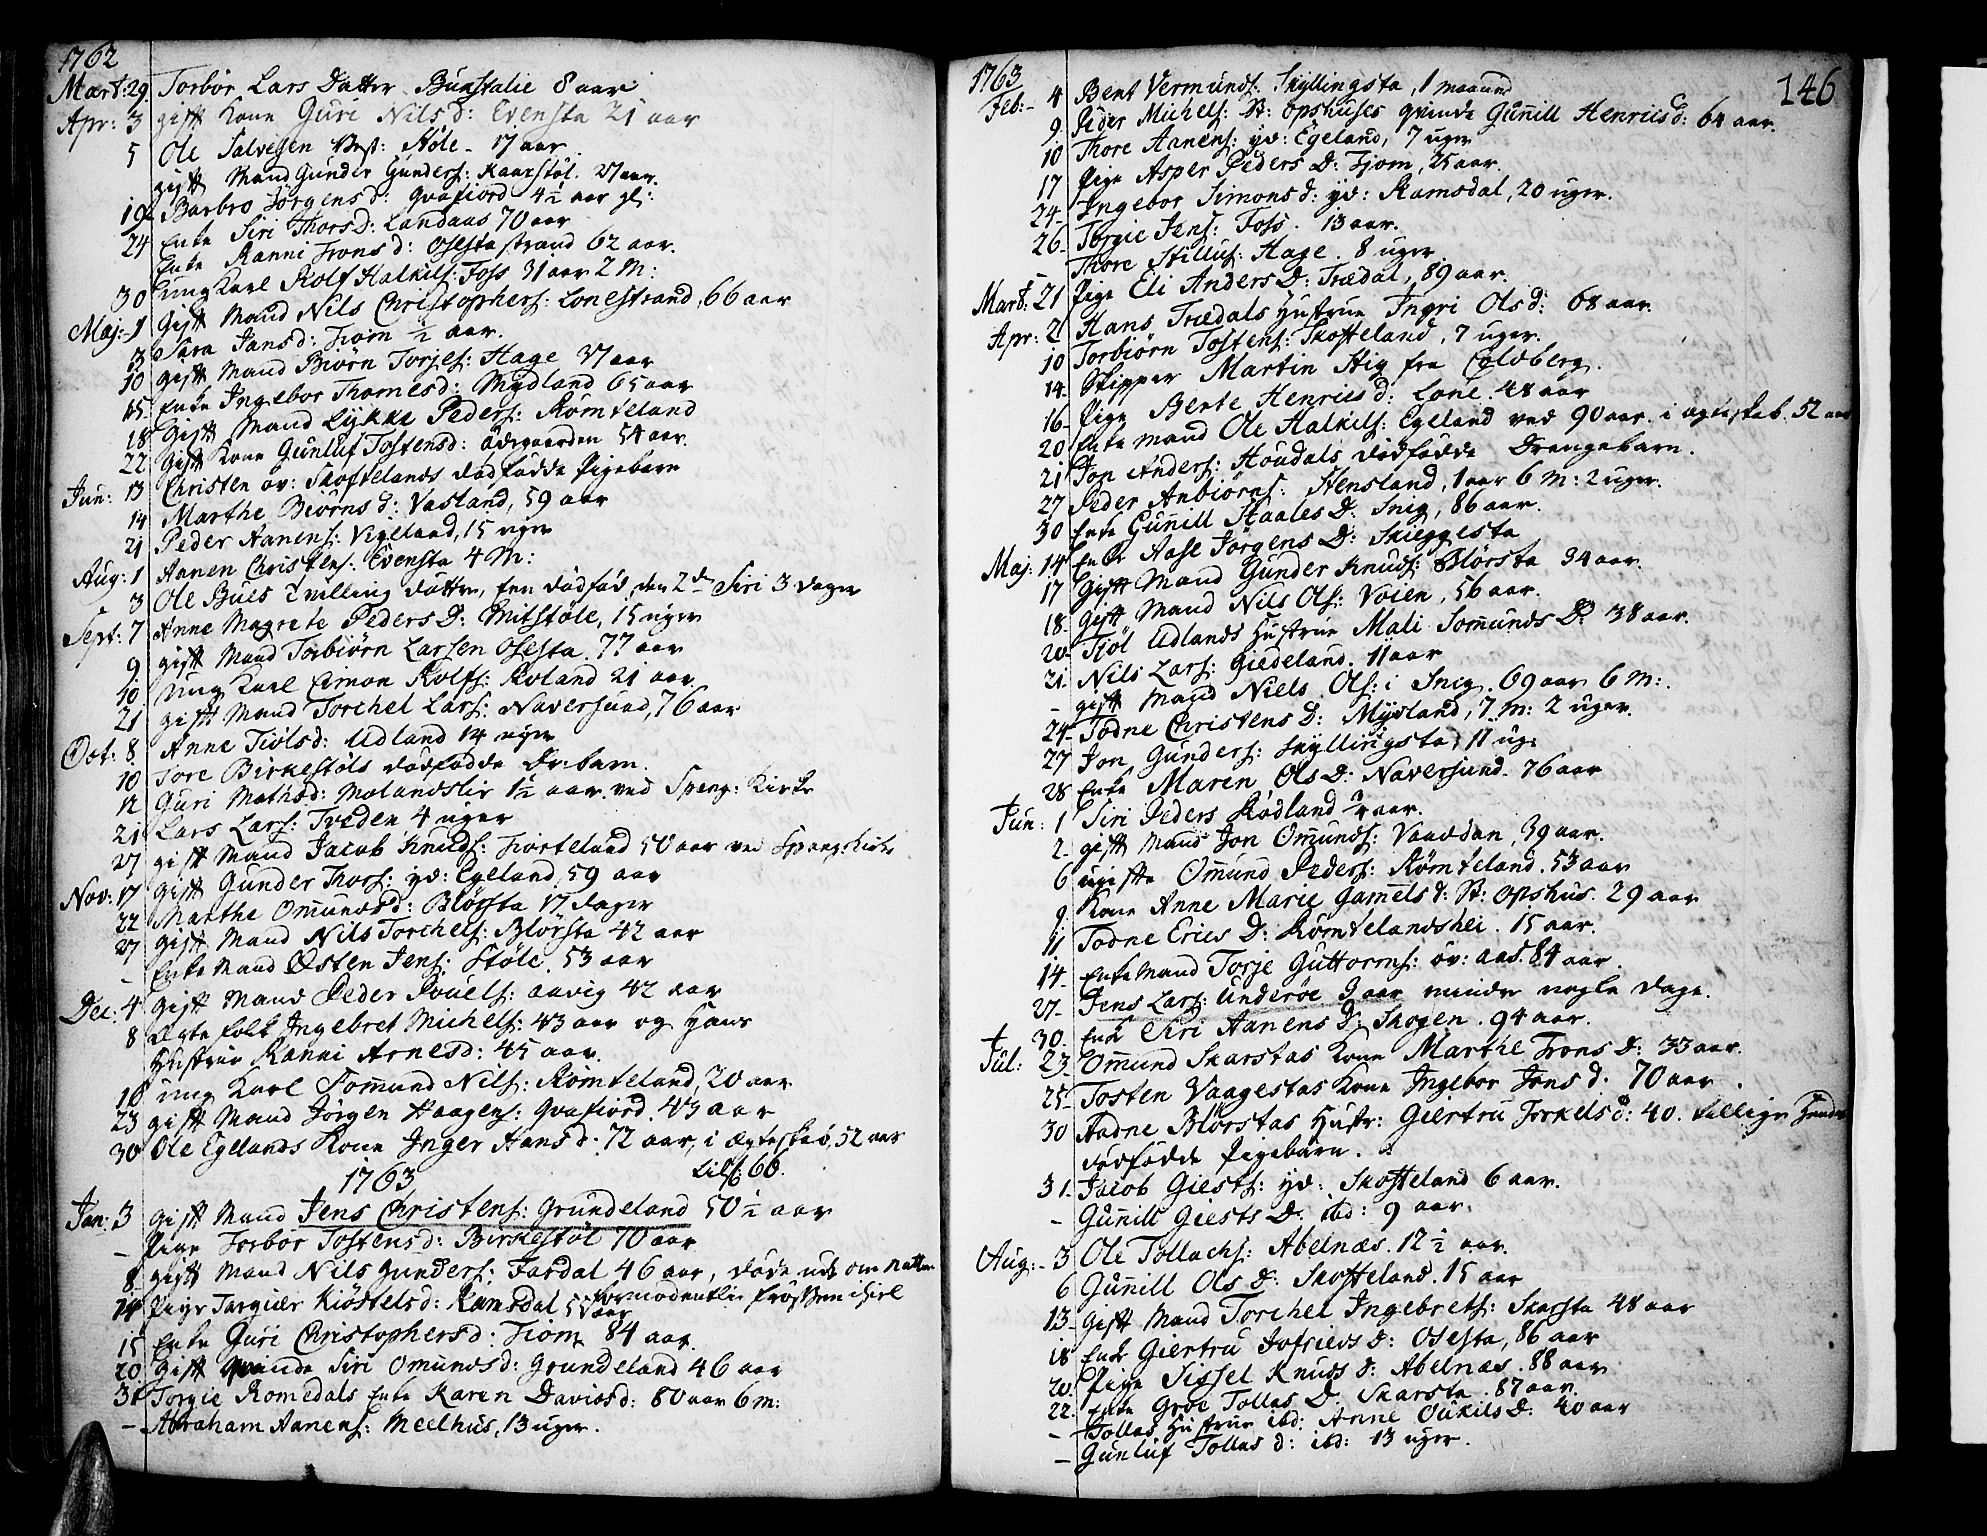 1762
Mart: 29 Torbor Lars Datter Bunstalie 8 aar
Apr: 3 gift Kone Guri Nilsd: Evensta 21 aar
5 Ole Salvesen Vest: Støle 17 aar
gift Mand Gunder Gunders: Kaarstøl. 27 aar.
19 Barbro Jørgensd: Qvafiord 4½ aar gl:
24 Enke Siri Thorsd: Landaas 70 aar
Enke Ranni Tronsd: Osestastrand 62 aar.
30 ung Karl Rolf Halkils: Foss 31 aar 2 M:
Maj: 1 gift Mand Nils Christophers: Lonestrand, 66 aar
3 Sara Jansd: Fiom ½ aar.
10 gift Mand Biørn Torjes: Hage 37 aar
15 Enke Ingebor Thomesd: Mydland 65 aar
18 gift Mand Lykke Peders: Rømteland
22 gift Kone Gunluf Tostensd: Ødegaarden 54 aar.
Jun: 13 Christen øv: Skoftelands dødfødde Pigebarn
14 Marthe Biørnsd: Vasland, 59 aar
21 Peder Aanens: Vigeland, 15 uger
Aug: 1 Aanen Christens: Evensta 4 M:
3 Ole Bues Tvilling døttre, een dødfød, den 2den Siri 3 dager
Sept: 7 Anne Magrete Peders D: Mitstøle, 15 uger
9 gift Mand Torbiørn Larsen Osesta 77 aar
10 ung Karl Simon Rolfs: Roland 21 aar
21 gift Mand Torchel Lars: Naversund, 76 aar
Oct: 8 Anne Tiølsd: Udland 14 uger
10 Tore Birkestøls dødfødde Dr: barn.
12 Guri Mathisd: Molandslie 1½ aar. ved Spang: Kirke
21 Lars Lars: Treden 4 uger
27 gift Mand Jacob Knuds: Fiorteland 50 aar ved Spang: Kirke
Nov: 17 gift Gunder Thors: yd: Egeland 59 aar
22 Marthe Omundsd: Blørsta 17 dager
27 gift Mand Nils Torchels: Blørsta 42 aar
– Enke Mand Østen Jens: Støle 53 aar
Dec: 4 gift Mand Peder Povels: Aavig 42 aar
8 Ægtefolk Ingebret Michels: 43 aar og Hans
Hustrue Ranni Arnesd: 45 aar.
16 ung Karl Tommund Nils: Rømteland, 20 aar
23 gift Mand Jørgen Haagens: Qvafiord 43 aar
30 Ole Egelands Kone Inger Hansd: 72 aar, i Ægteskab, 52 aar
1763
66.
Jan: 3 gift Mand Jens Christens: Grundeland 50½ aar
– Pige Torbor Tostensd: Birkestøl 70 aar
8 gift Mand Nils Gunders: Fardal 46 aar, døde ude om Natten
formodentlig frossen ihiel
14 Pige Targier Kiøstelsd: Ramsdal 55 aar
15 Enke Guri Christophersd: Fiom 84 aar
20 gift Qvinde Siri Omundsd: Grundeland 46 aar
31 Torgie Romedals Enke Karen Davidsd: 80 aar 6 m:
– Abraham Aanens: Meelhus, 13 uger.
146
1763
Feb: 4 Bent Vermunds: Skyllingsta, 1 maaned
9 Peder Michels: St: Opshuses qvinde Gunill Henricsd: 64 aar.
10 Thore Aanens: yd: Egeland, 7 uger
17 Pige Asper Peders D: Fjom, 25 aar.
24 Ingebor Simonsd: yd: Ramsdal, 20 uger.
26 Torgie Jens: Foss. 13 aar.
Thore Stillus: Hage. 8 uger
Mart: 21 Pige Eli Anders D: Trædal, 89 aar.
Apr: 2 Hans Trædals Hustrue Ingri Olsd: 68 aar.
10 Torbiørn Tostens: Skofteland, 7 uger.
14 Skipper Martin Stig fra Coldberg.
16 Pige Bente Henricsd: Lone. 48 aar
20 Enke mand Ole Halkils: Egeland ved 90 aar. i ægteskab. 52 aar
21 Jon Anders: Houdals dødfødde Drengebarn.
27 Peder Anbiørns: Stensland, 1 aar 6 M: 2 uger.
30 Enke Gunill Staales D: Snig, 86 aar.
Maj: 14 Enke Aase Jørgens D: Skieggesta
17 gift Mand Gunder Knuds: Blørsta 34 aar.
18 gift Mand Nils Ols: Voien, 56 aar.
20 Tiøl Udlands Hustrue Mali Tommunds D: 38 aar.
21 Nils Lars: Giedeland. 11 aar
– gift Mand Niels Ols: i Snig. 69 aar 6 M:
24 Todne Christens D: Mydland, 7 m: 2 uger.
27 Jon Gunders: Skyllingsta, 11 ug:
28 Enke Maren Ols D: Naversund. 76 aar
Jun: 1 Siri Peders Rødland ¾ aar.
2 gift Mand Jon Omunds: Vaardan, 39 aar.
6 ugifte Omund Peders: Rømteland. 53 aar
9 Kone Anne Marie Gamelsd: St: Opshus. 29 aar
11 Todne Erics D: Rømtelandshei. 15 aar.
14 Enke Mand Torje Guttorms: øv: aas. 84 aar.
27 Jens Lars: Underøe 9 aar minder nogle Dage.
30 Enke Siri Aanens D: Skogen. 94 aar.
Jul: 23 Omund Skarstas Kone Marthe Trons D: 33 aar.
25 Tosten Vaagestas Kone Ingebor Jonsd: 70 aar.
30 Aadne Blørstas Hustr: Giertru Torkelsd: 40.
dødfødde Pigebarn.
31 Jacob Giests: yd: Skofteland 6 aar.
– Gunill Giests D: ibd: 9 aar.
Aug: 3 Ole Tollachs: Abelnæs. 12½ aar.
6 Gunill Ols D: Skofteland. 15 aar
13 gift Mand Torchel Ingebrets: Skarsta 48 aar
18 Enke Giertru Jofrieds D: Osesta, 86 aar
20 Pige Sissel Knuds D: Abelnæs. 88 aar
22 Enke Groe Tolles D: Skarsta. 87 aar.
– Tolles Hustrue ibd: Anne Oukils D: 40 aar
– Gunluf Tolles d: ibd: 13 uger.